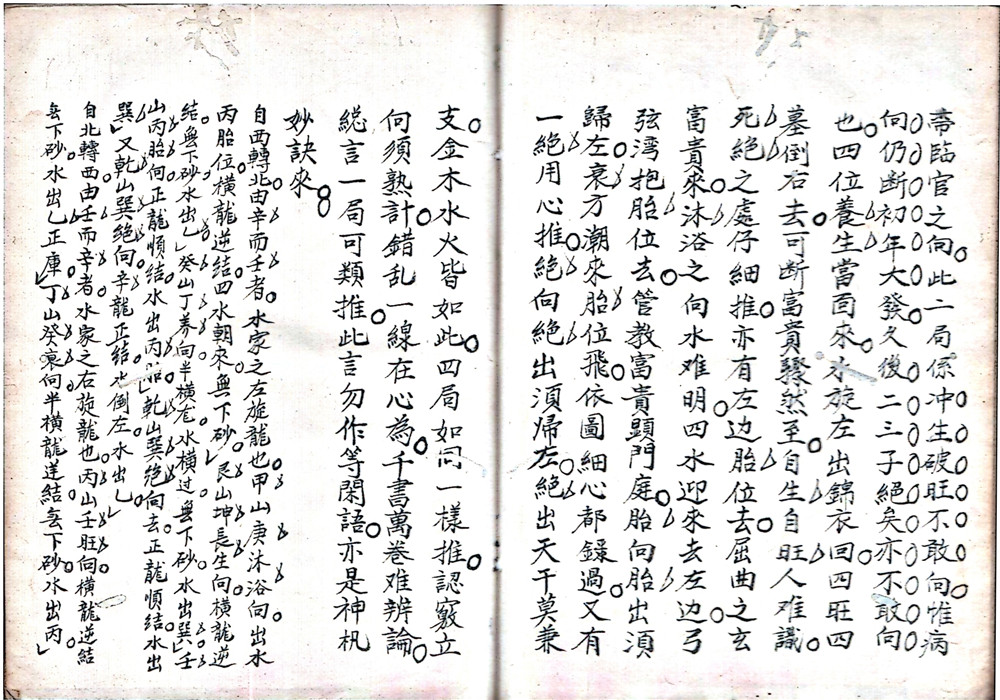 帶臨官之向此二局係冲生破旺不敢向惟病
向仍断初年大發久後二三子絕矣亦不敢向
也四位養生當面來水旋左出錦衣回四旺四
墓倒右去可断富貴驟然至自生自旺人难識
死絕之處仔細推亦有左边胎位去屈曲之玄
富貴來沐浴之向水难明四水迎來去左边弓
弦湾抱胎位去管教富貴顕門庭胎向胎出須
歸左衰方潮來胎位飛依圖細心都錄過又有
一絕用心推絕向絕出須帰左絕出天干莫兼
支金木水火皆如此四局如同一樣推認竅立
何須熟計錯乱一線在心為千書萬卷难辨論
総言一局可類推此言勿作等閑語亦是神机
妙訣來
自西轉北由辛而壬者水家之左旋龍也甲山庚沐浴向出水
丙胎位橫龍逆結四水朝來無下砂艮山坤長生向橫龍逆
結無下砂水出乙癸山丁養向半横左水横过無下砂水出巽壬
山丙胎向正龍順結水出丙胎乾山巽絕向去正龍順結水出
巽又乾山巽絕向辛龍正結水倒左水出乙
自北轉西由壬而辛者水家之右旋龍也丙山壬旺向橫龍逆結
無下砂水出乙正庫丁山癸衰向半橫龍逆結無下砂水出丙